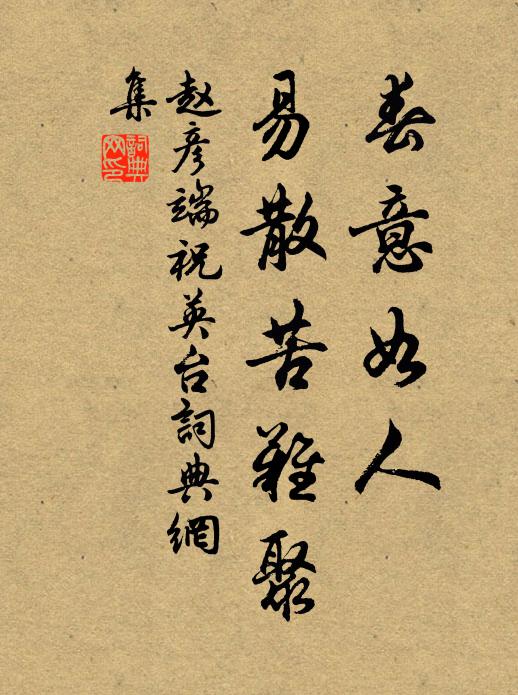 春意如人
易散苦難聚
赵彦端祝英台詞典網
集
詞典网印